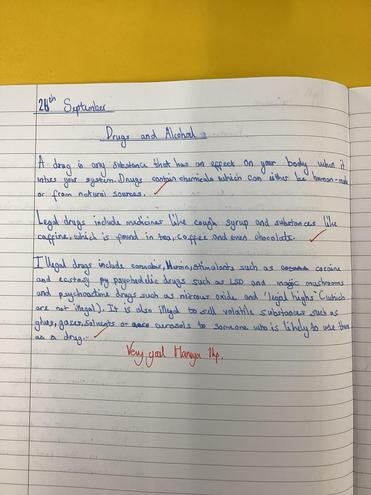 28th September
Drugs and Alcohol
A drug is any substance that has an effect on your body when it
enters your system. Drugs contain chemicals which can either be human-made
or from natural sources.
Legal drugs include medicines like cough syrup and substances like
caffine, which is found in tea, coffee and even chocolate.
Illegal drugs include cannabis, stimulants such as cocaine
and ecstasy psychedelic drugs such as LSD and magic mushrooms
and psychoactive drugs such as nitrous oxide and 'legal highs' (which
are not illegal). It is also illegal to sell volatile substances such as
glues, gases, solvents or aerosols to someone who is likely to use them
as a drug.
Very good 1hp.